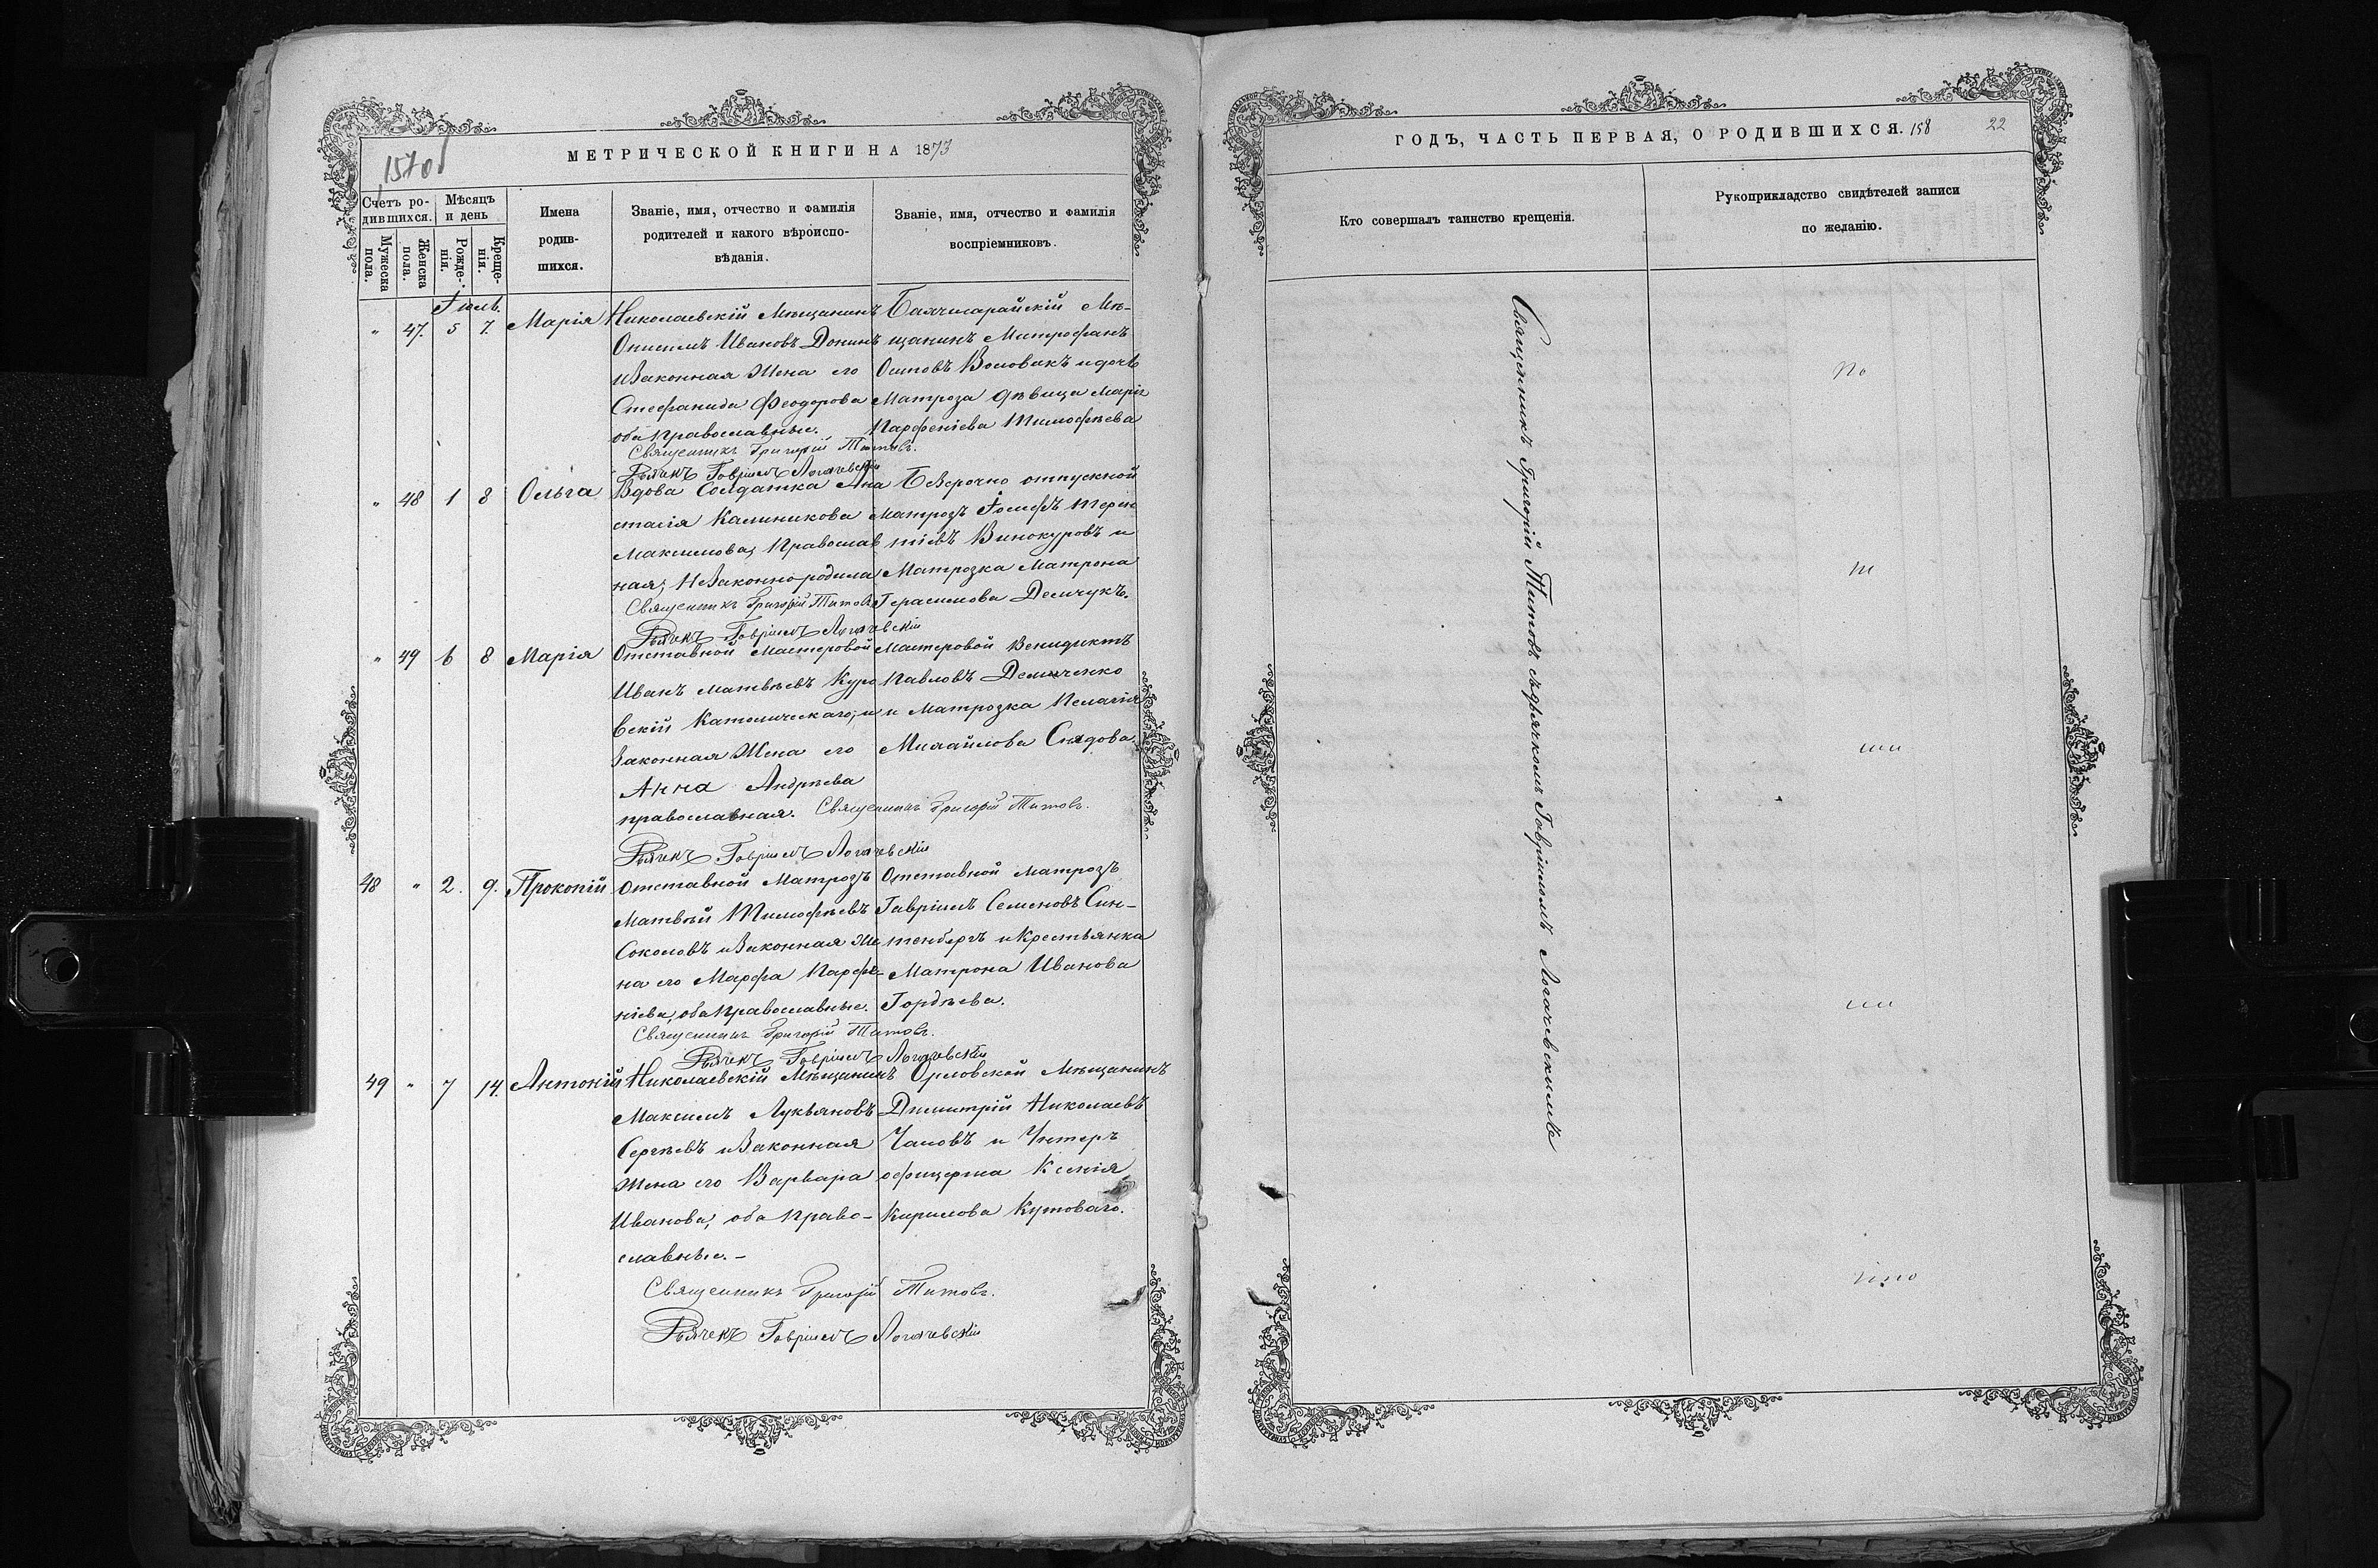 МЕТРИЧЕСКОЙ КНИГИ НА 1873
Счетъ ро-
дившихся.
Мѣсяцъ
и день
Мужеска
пола.
Женска
пола.
Рожде-
нія.
Креще-
нія.
Имена
родив-
шихся.
Званіе, имя, отчество и фамилія
родителей и какого вѣроиспо-
вѣданія.
Званіе, имя, отчество и фамилія
воспріемниковъ.
Іюль.
" 47. 5 7. Марія
Николаевскій Мѣщанинъ
Онисимъ Ивановъ Донинъ
и Законная Жена его
Стефанида Феодорова
оба Православные.
Бахчисарайскій Мѣ-
щанинъ Митрофанъ
Осиповъ Воловикъ и дочь
Матроза дѣвица Марія
Парфеніева Тимофѣева
Священникъ Григорій Титовъ.
Дьячекъ Гавріилъ Логачевскій
" 48 1 8 Ольга
Вдова Солдатка Ана
стасія Калиникова
Максимова, Православ
ная; Незаконно родила
Безсрочно отпускной
Матрозъ Іосифъ Терен
тіевъ Винокуровъ и
Матрозка Матрона
Герасимова Демчукъ.
Священникъ Григорій Титовъ
Дьячекъ Гавріилъ Логачевскій
" 49 6 8 Марія
Отставной Мастеровой
Иванъ Матвѣевъ Куро
вскій Католическаго, и
Законная Жена его
Анна Андрѣева
православная.
Мастеровой Венидиктъ
Павловъ Демиченко
и Матрозка Пелагія
Михайлова Снядова
Священникъ Григорій Титовъ.
Дьячекъ Гавріилъ Логачевскій
48 " 2. 9. Прокопій
Отставной Матрозъ
Матвѣй Тимофѣевъ
Соколовъ и Законная Же
на его Марфа Парфе-
ніева, оба Православные.
Отставной Матрозъ
Гавріилъ Семеновъ Син-
тенбергъ и Крестьянка
Матрона Иванова
Гордѣева.
Священникъ Григорій Титовъ.
Дьячекъ Гавріилъ Логачевскій
49 " 7 14. Антоній
Николаевскій Мѣщанинъ
Максимъ Лукьяновъ
Сергѣевъ и Законная
Жена его Варвара
Иванова, оба Право-
славные. –
Орловской Мѣщанинъ
Димитрій Николаевъ
Чаловъ и Унтеръ
офицерша Ксенія
Кирилова Кутоваго.
Священникъ Григорій Титовъ.
Дьячекъ Гавріилъ Логачевскій
ГОДЪ, ЧАСТЬ ПЕРВАЯ, О РОДИВШИХСЯ. 158 22
Кто совершалъ таинство крещенія.
Рукоприкладство свидѣтелей записи
по желанію.
Священникъ Григорій Титовъ съ дьячкомъ Гавріиломъ Логачевскимъ